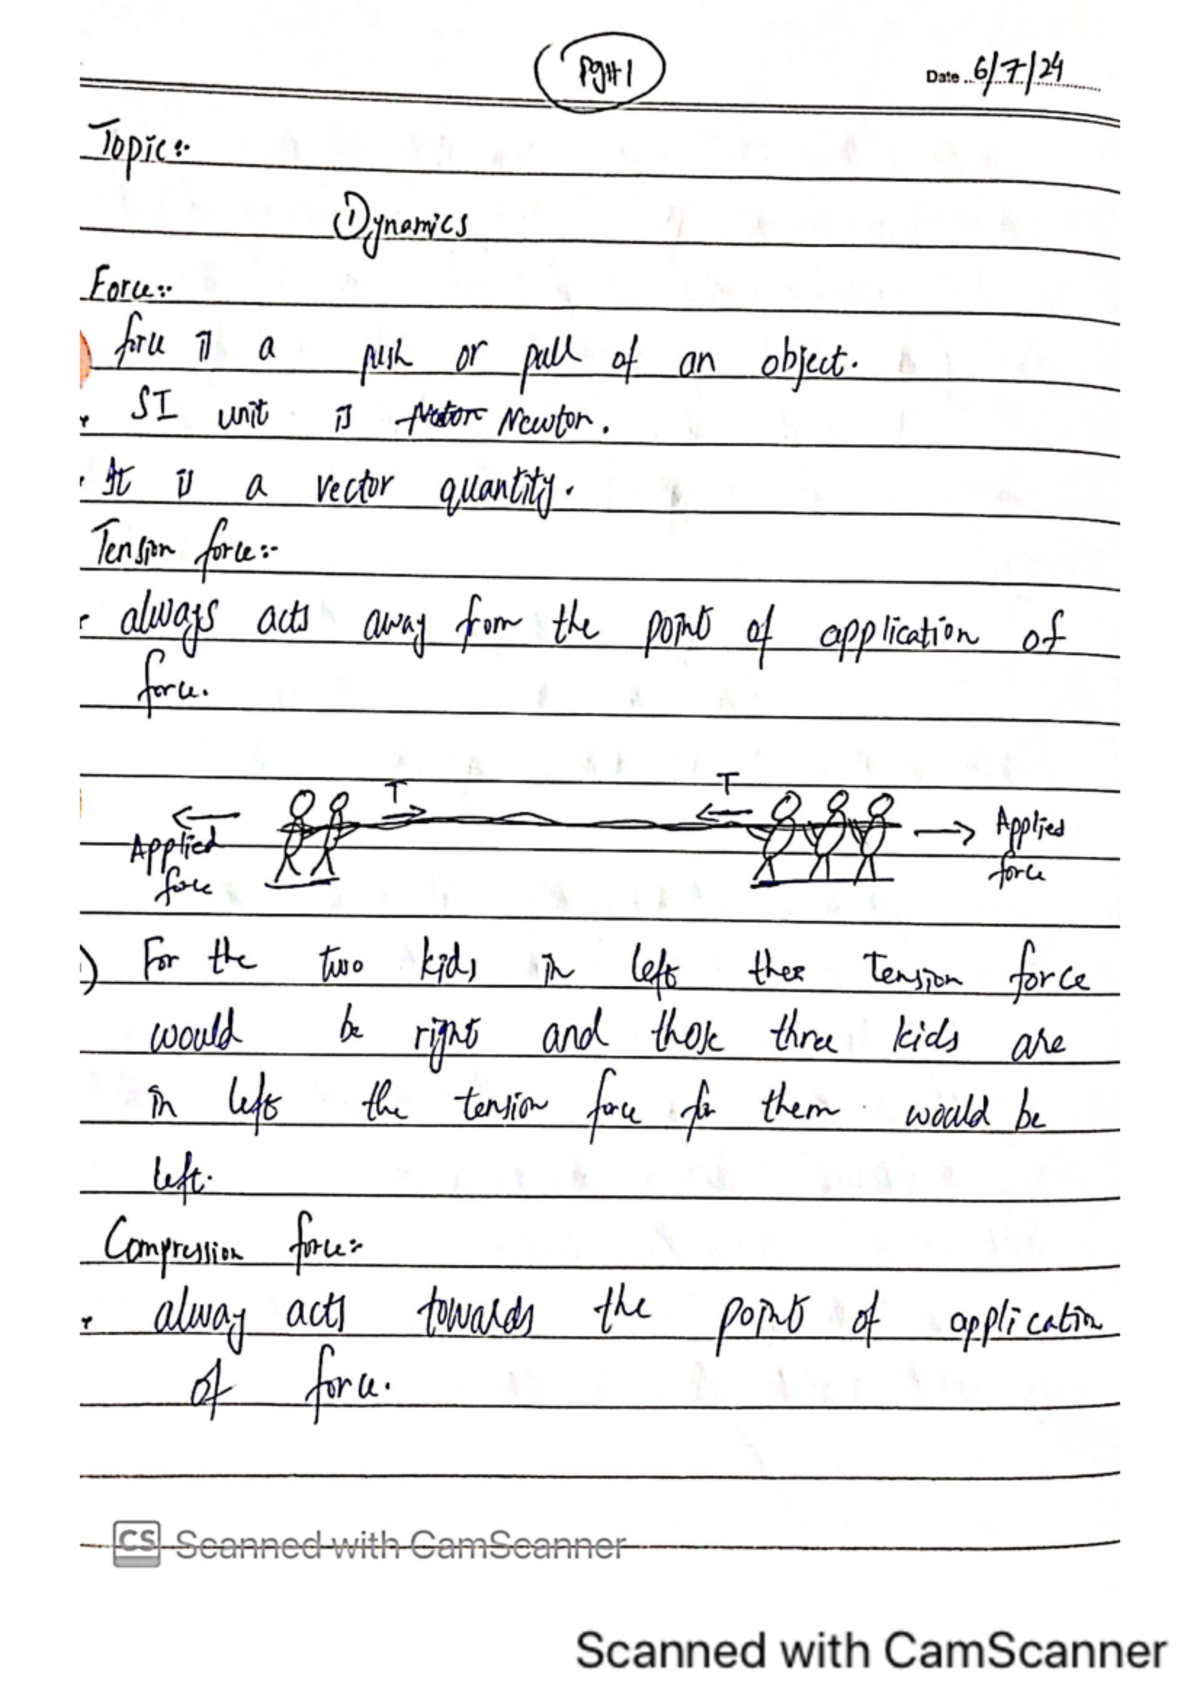 Pg#1
Date 6/7/24
Topic:-
Dynamics
Force:-
force is a push or pull of an object.
SI unit is Newton.
It is a vector quantity.
Tension force:-
always acts away from the point of application of
force.
T T
Applied force
Applied force
For the two kids in left thee Tension force
would be right and those three kids are
in left the tension force for them would be
left.
Compression force:-
alway acts towards the point of application
of force.
CS Scanned with CamScanner
Scanned with CamScanner